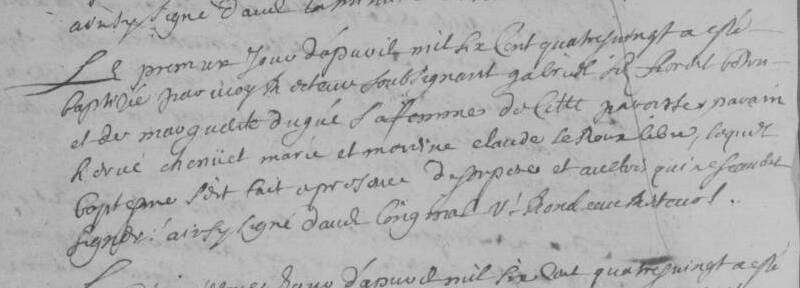 ainsy signé
Le premier Jour d'apuril mil six Cent quatre vingt a esté
baptisé par moy Recteur soubsignant gabriel fils Rondt bodin
et de marguerite dugué sa femme de Cette paroisse, parain
hervé chenüet marié et maraine claude le Roux libre, lequel
baptesme s'est fait a presence du pere et aultres qui ne scauent
signer: ainsy signé d'aud. V. Rondeau Recteur.
Jour d'apuril mil six Cent quatre vingt a esté